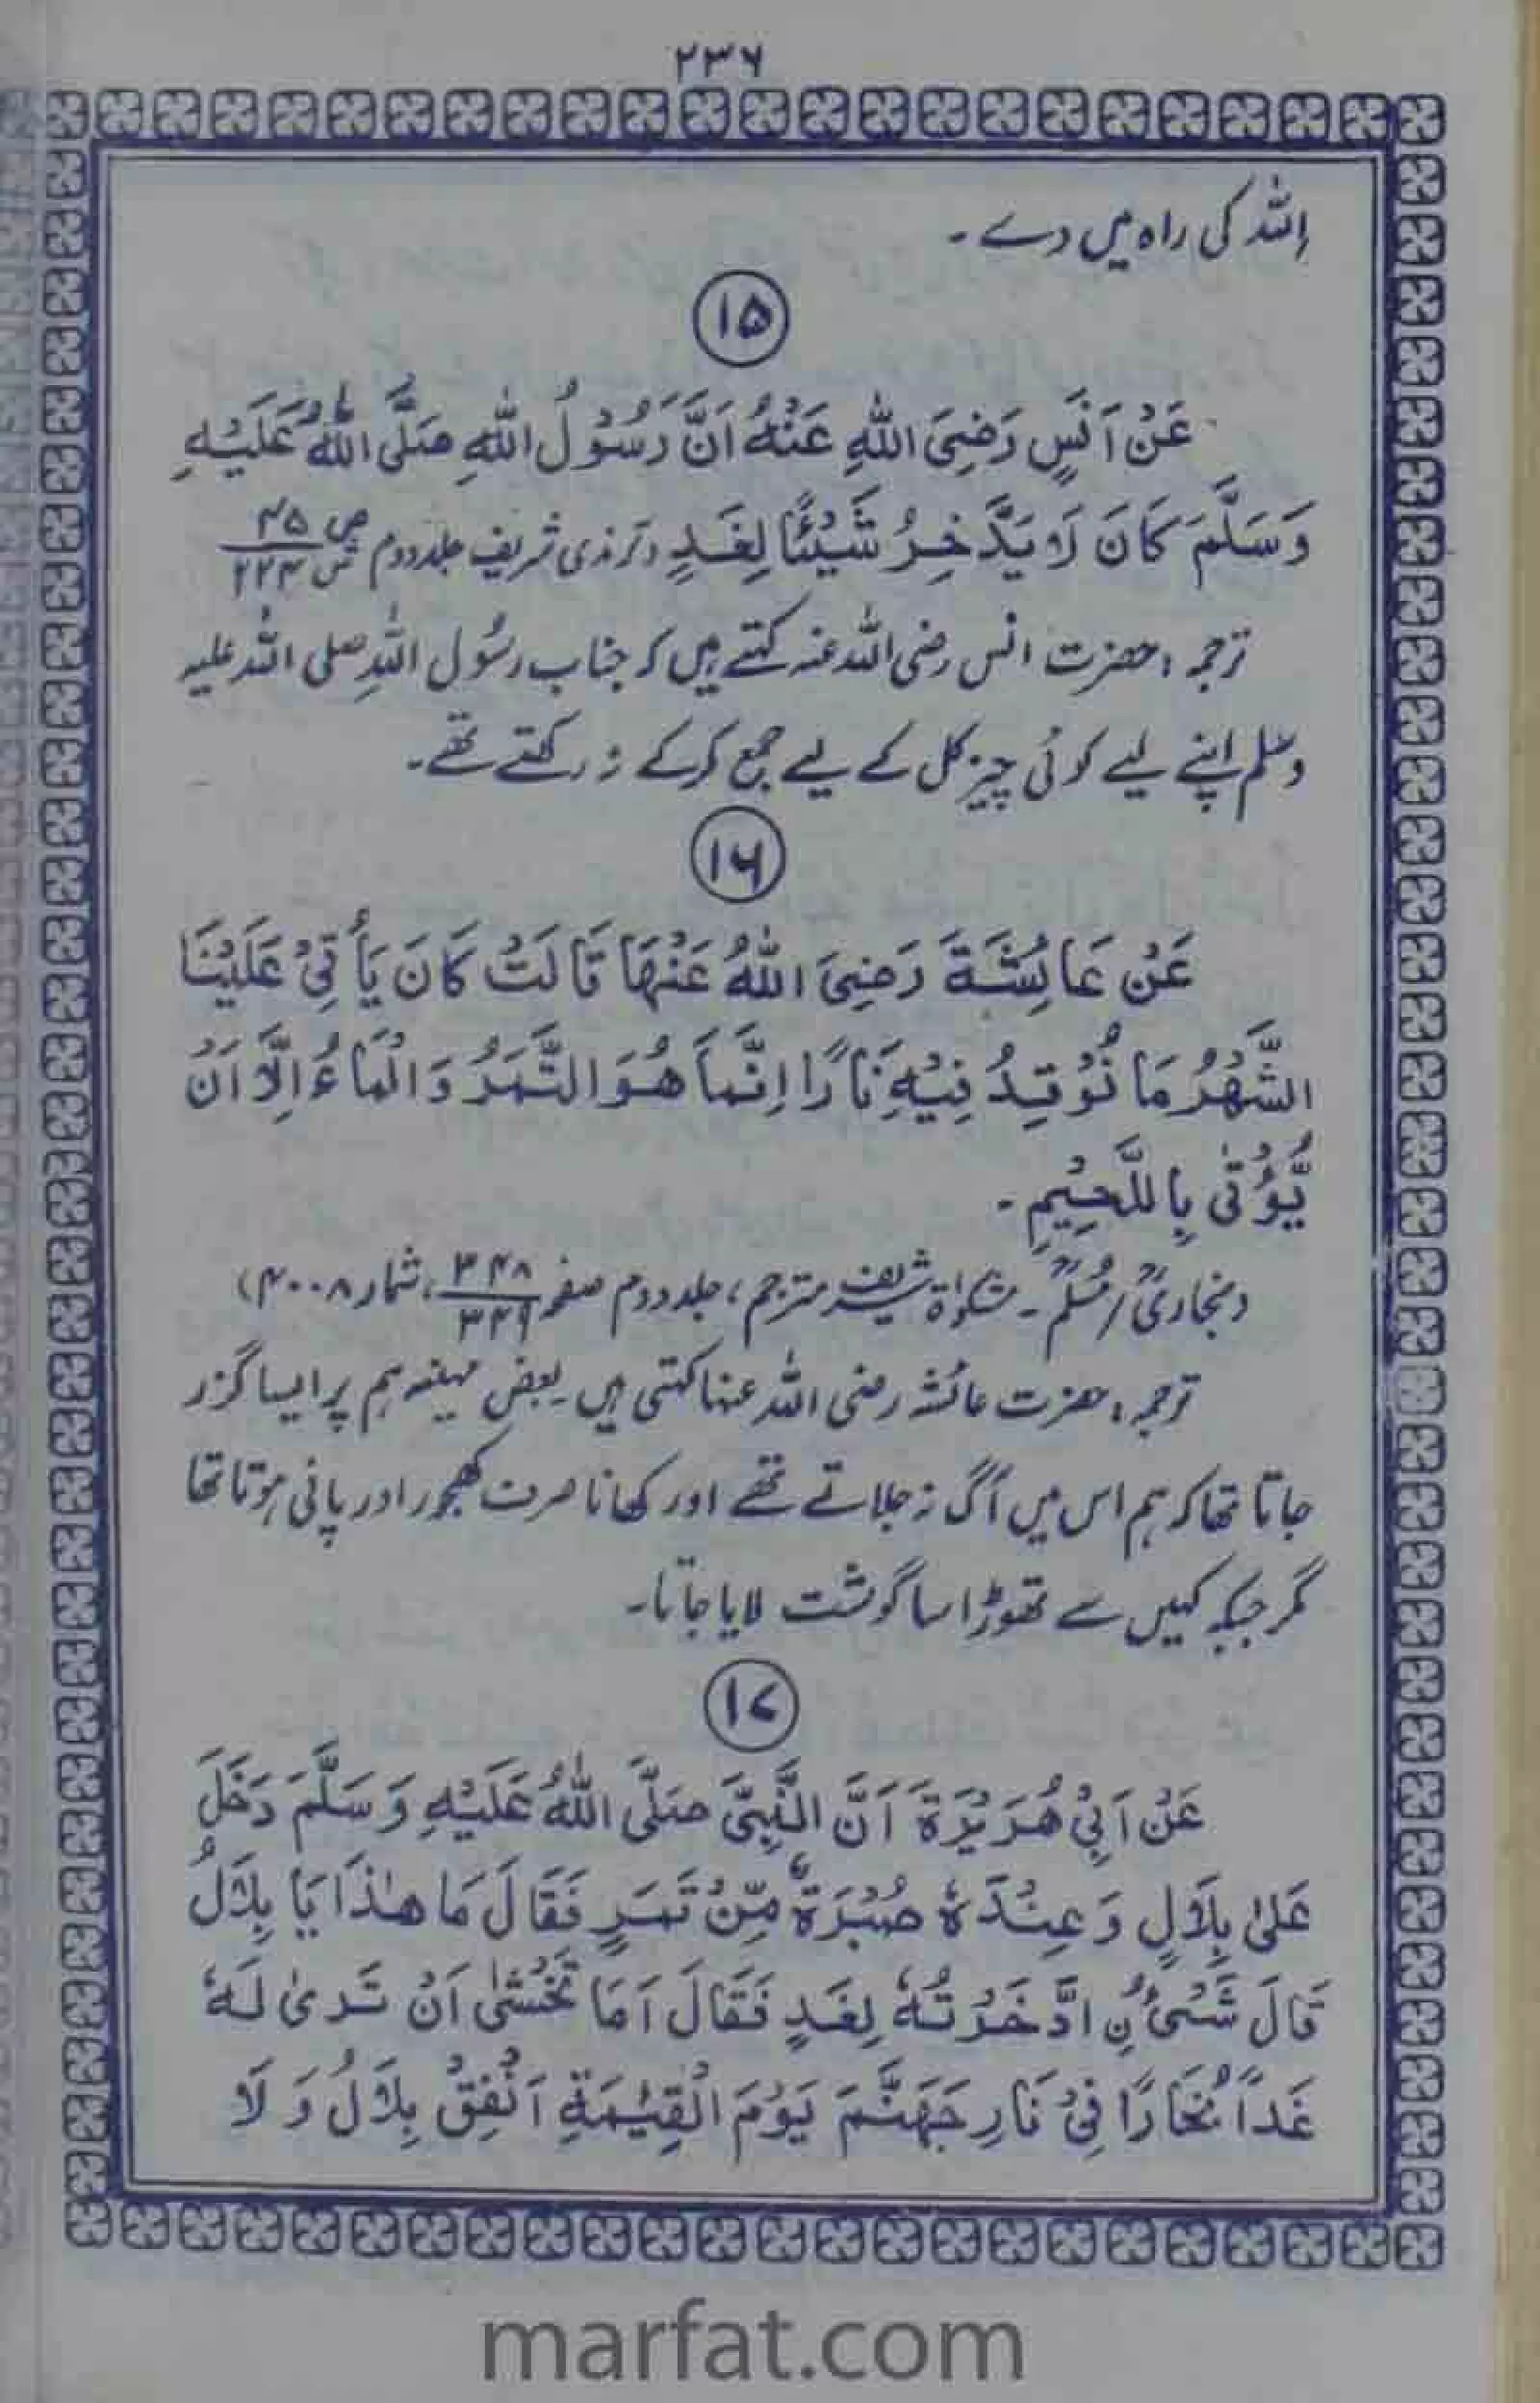 ۲۳۶
اللہ کی راہ میں دے۔
۱۵
عَنْ اَنَسٍ رَضِیَ اللهِ عَنْهُ اَنَّ رَسُوْلُ اللهِ صَلَّی اللهُ عَلَیْهِ
وَسَلَّمَ کَانَ لَا یَدَّخِرُ شَیْئًا لِغَدٍ (ترمذی شریف جلد دوم ص
ترجمہ: حضرت انس رضی اللہ عنہ کہتے ہیں کہ جناب رسُول اللہِ صلی اللہ علیہ
وسلم اپنے لیے کوئی چیز کل کے لیے جمع کرکے نہ رکھتے تھے۔
۱۶
عَنْ عَائِشَةَ رَضِیَ اللهُ عَنْهَا قَالَتْ کَانَ یَأْتِیْ عَلَیْنَا
الشَّهْرُ مَا نُوْقِدُ فِیْهِ نَارًا اِنَّمَا هُوَ التَّمَرُ وَالْمَاءُ اِلَّا اَنْ
یُّؤْتٰی بِاللَّحِیْمِ۔
(بخاریؒ/مُسلمؒ۔ مشکوٰۃ شریف مترجم، جلد دوم صفحہ ۳۴۸/۳۴۹، شمار ۴۰۰۸)
ترجمہ: حضرت عائشہ رضی اللہ عنہا کہتی ہیں۔ بعض مہینہ ہم پر ایسا گزر
جاتا تھا کہ ہم اس میں آگ نہ جلاتے تھے اور کھانا صرف کھجور اور پانی ہوتا تھا
مگر جبکہ کہیں سے تھوڑا سا گوشت لایا جاتا۔
۱۷
عَنْ اَبِیْ هُرَیْرَةَ اَنَّ النَّبِیَّ صَلَّی اللهُ عَلَیْهِ وَسَلَّمَ دَخَلَ
عَلٰی بِلَالٍ وَعِنْدَهٗ صُبْرَةٌ مِّنْ تَمَرٍ فَقَالَ مَا هٰذَا یَا بِلَالُ
قَالَ شَیْءُنِ ادَّخَرْتُهٗ لِغَدٍ فَقَالَ اَمَا تَخْشٰی اَنْ تَرٰی لَهٗ
غَدًا بُخَارًا فِیْ نَارِ جَهَنَّمَ یَوْمَ الْقِیٰمَةِ اَنْفِقْ بِلَالُ وَلَا
marfat.com